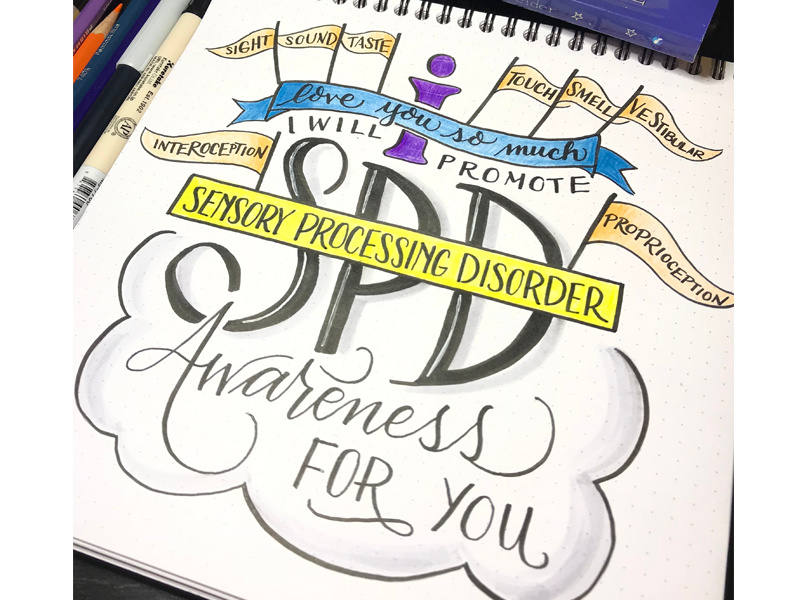 SIGHT
SOUND
TASTE
TOUCH
SMELL
VESTIBULAR
i
love you so much
INTEROCEPTION
I WILL PROMOTE
SPD
SENSORY PROCESSING DISORDER
PROPRIOCEPTION
Awareness
FOR YOU
Kuretake
Est 1902